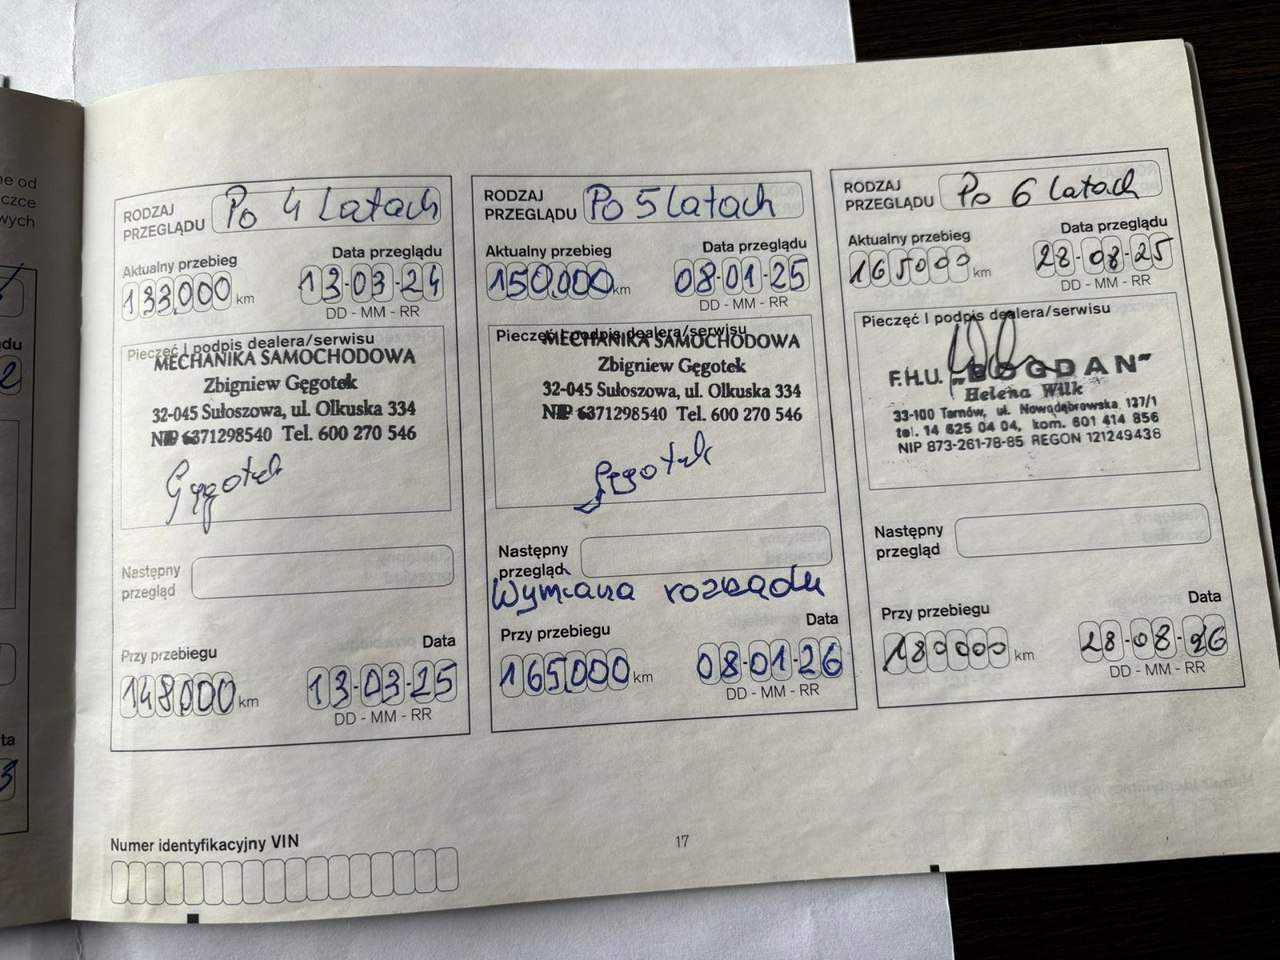 ne od
czce
wych
du
2
ta
3
RODZAJ
PRZEGLĄDU Po 4 Latach
Aktualny przebieg Data przeglądu
133.000 km 13-03-24
DD - MM - RR
Pieczęć i podpis dealera/serwisu
MECHANIKA SAMOCHODOWA
Zbigniew Gęgotek
32-045 Sułoszowa, ul. Olkuska 334
NIP 6371298540 Tel. 600 270 546
Gęgotek
Następny
przegląd
Przy przebiegu Data
148.000 km 13-03-25
DD - MM - RR
RODZAJ
PRZEGLĄDU Po 5 Latach
Aktualny przebieg Data przeglądu
150.000 km 08-01-25
DD - MM - RR
Pieczęć i podpis dealera/serwisu
MECHANIKA SAMOCHODOWA
Zbigniew Gęgotek
32-045 Sułoszowa, ul. Olkuska 334
NIP 6371298540 Tel. 600 270 546
Gęgotek
Następny
przegląd
Wymiana rozrządu
Przy przebiegu Data
165.000 km 08-01-26
DD - MM - RR
RODZAJ
PRZEGLĄDU Po 6 Latach
Aktualny przebieg Data przeglądu
165000 km 28-08-25
DD - MM - RR
Pieczęć i podpis dealera/serwisu
F.H.U. „BOGDAN”
Helena Wilk
33-100 Tarnów, ul. Nowodąbrowska 137/1
tel. 14 625 04 04, kom. 601 414 856
NIP 873-261-78-85 REGON 121249436
Następny
przegląd
Przy przebiegu Data
180000 km 28-08-26
DD - MM - RR
Numer identyfikacyjny VIN
17